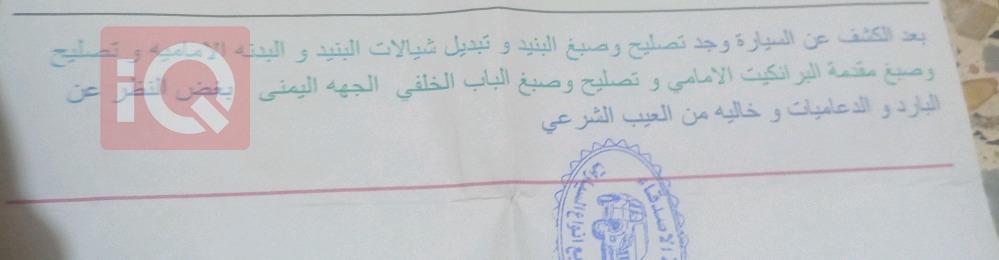 بعد الكشف عن السيارة وجد تصليح وصبغ البنيد و تبديل شيالات البنيد و البدنه الاماميه و تصليح
وصبغ مقدمة البرانكيت الامامي و تصليح وصبغ الباب الخلفي الجهه اليمنى بغض النظر عن
البارد و الدعاميات و خاليه من العيب الشرعي
IQ
الاصدقاء
انواع السيارات